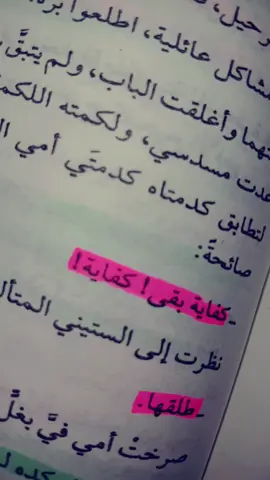 رحيل،
مشاكل عائلية، اطلعوا بره
تهما وأغلقت الباب، ولم يتبقَّ
عدت مسدسي، ولكمته اللكمة
لتطابق كدمتاه كدمتَي أمي
صائحةً:
ـ كفاية بقى! كفاية!
نظرت إلى الستيني المتأل
ـ طلقها.
صرختْ أمي فيَّ بغلٍّ
كده